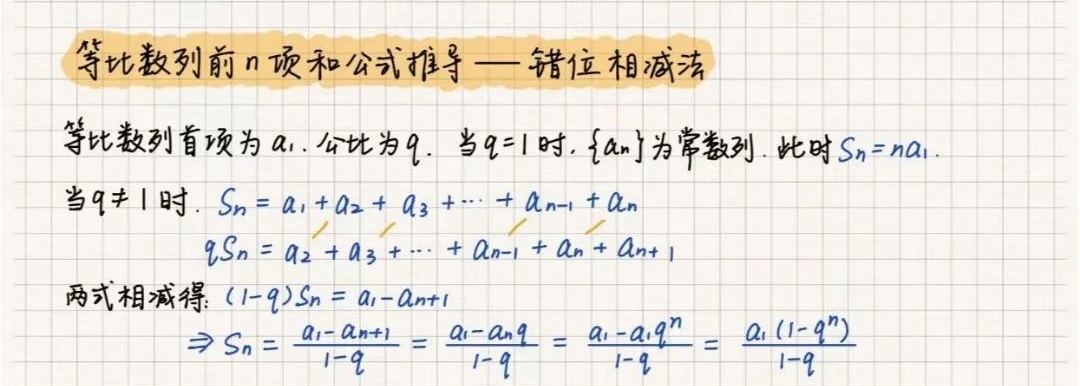 等比数列前n项和公式推导——错位相减法
等比数列首项为a₁.公比为q. 当q=1时,{aₙ}为常数列.此时Sₙ=na₁.
当q≠1时. Sₙ = a₁ + a₂ + a₃ + ⋯ + aₙ₋₁ + aₙ
qSₙ = a₂ + a₃ + ⋯ + aₙ₋₁ + aₙ + aₙ₊₁
两式相减得: (1-q)Sₙ = a₁ - aₙ₊₁
⇒ Sₙ = (a₁-aₙ₊₁)/(1-q) = (a₁-aₙq)/(1-q) = (a₁-a₁qⁿ)/(1-q) = a₁(1-qⁿ)/(1-q)